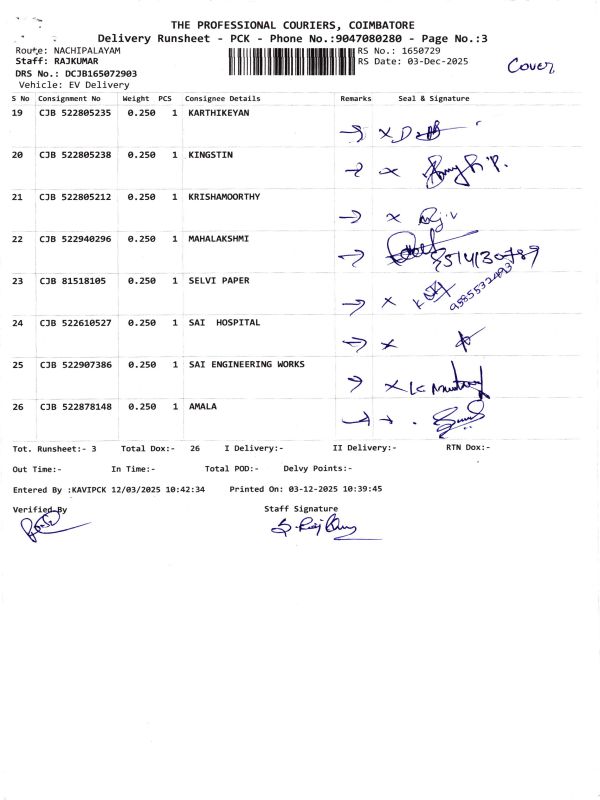 THE PROFESSIONAL COURIERS, COIMBATORE
Delivery Runsheet - PCK - Phone No.:9047080280 - Page No.:3
Route: NACHIPALAYAM
RS No.: 1650729
Staff: RAJKUMAR
RS Date: 03-Dec-2025
Cover
DRS No.: DCJB165072903
Vehicle: EV Delivery
S No Consignment No Weight PCS Consignee Details Remarks Seal & Signature
19 CJB 522805235 0.250 1 KARTHIKEYAN
20 CJB 522805238 0.250 1 KINGSTIN
21 CJB 522805212 0.250 1 KRISHAMOORTHY
22 CJB 522940296 0.250 1 MAHALAKSHMI
23 CJB 81518105 0.250 1 SELVI PAPER
9585532493
24 CJB 522610527 0.250 1 SAI HOSPITAL
25 CJB 522907386 0.250 1 SAI ENGINEERING WORKS
26 CJB 522878148 0.250 1 AMALA
Tot. Runsheet:- 3 Total Dox:- 26 I Delivery:- II Delivery:- RTN Dox:-
Out Time:- In Time:- Total POD:- Delvy Points:-
Entered By :KAVIPCK 12/03/2025 10:42:34 Printed On: 03-12-2025 10:39:45
Verified By Staff Signature